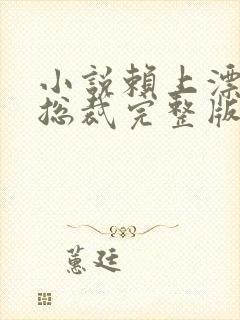 小説賴上漂
總裁完整版
蕙廷